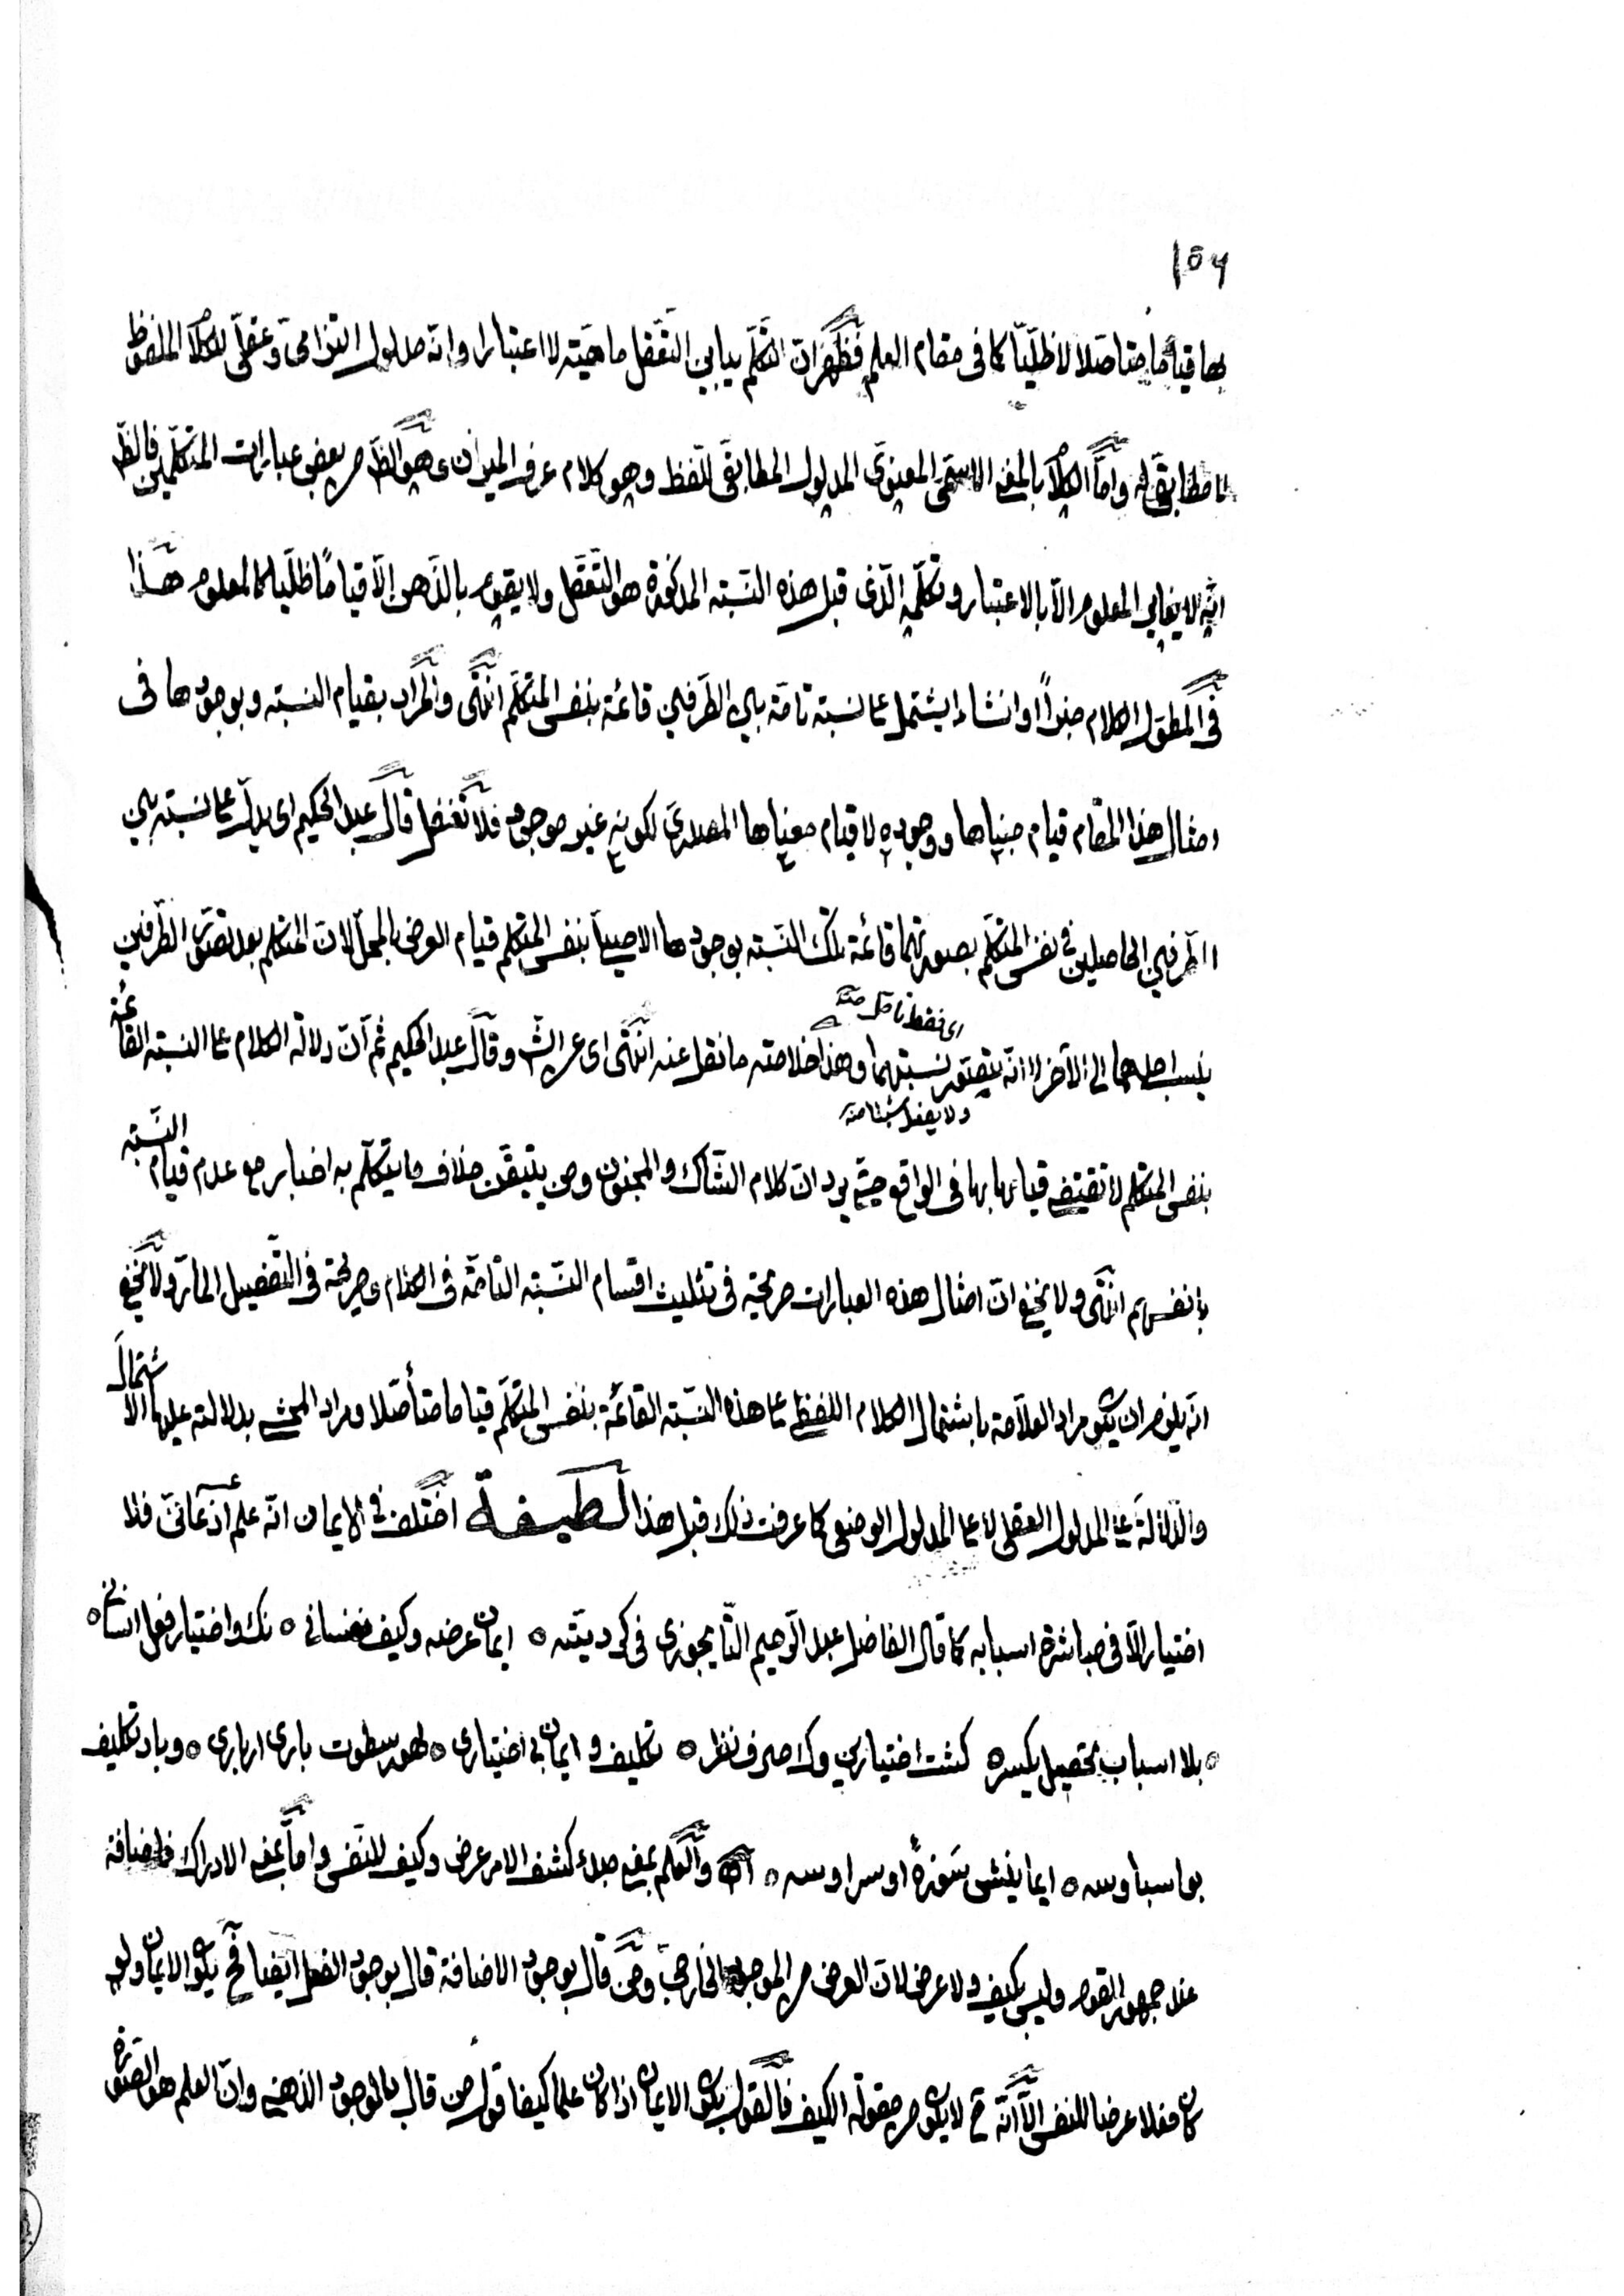 ١٥٦
بها قياما متاصلا لا ظليّا كما فى مقام العلم فظهر ان التكلّم يباين التعقّل ماهيّة لا اعتبارا وانّه مدلول التزامىّ وعقلىّ للكلام الملفوظ
لا مطابقى له وامّا الكلام بالمعنى الاسمىّ المعنوىّ المدلول المطابقى للّفظ وهو كلام عرف الميزان وهو الظ من بعض عبارات المتكلّمين فالظ
انّه لا يغاير المعلوم الاّ بالاعتبار وتكلّمه الّذى قبل هذه النّسبة المذكورة هو التّعقّل ولا يقوم بالذّهن الاّ قياما ظلّيا كالمعلوم هذا
فى المطوّل الكلام خبرا او انشاء يشتمل على نسبة تامّة بين الطّرفين قائمة بنفس المتكلّم انتهى والمراد بقيام النسبة وبوجودها فى
امثال هذا المقام قيام مبناها ووجوده لا قيام معناها المصدرىّ لكونه غير موجود فلا تغفل قال عبد الحكيم اى يدلّ على نسبة بين
الطّرفين الحاصلين فى نفس المتكلّم بصورتهما قائمة تلك النّسبة بوجودها الاصيل بنفس المتكلم قيام العرض بالمحلّ لانّ المتكلم بعد تصوّر الطّرفين
ينسب احدهما الى الآخر لا انّه يتصوّر نسبتهما وهذا خلاصة ما نقل عنه انتهى اى عن الش وقال عبد الحكيم ثم انّ دلالة الكلام على النسبة القائمة
اى فقط تأمّل منه
بنفس المتكلم لا تقتضى قيامها بها فى الواقع حتّى يرد انّ كلام الشّاك والمجنون ومن يتيقّن خلاف ما يتكلّم به اخبار مع عدم قيام النّسبة
بانفسهم انتهى ولا يخفى انّ امثال هذه العبارات صريحة فى تثليث اقسام النّسبة التامّة فى الكلام وصريحة فى التّفصيل المارّ ولا يخفى
انّه يلزم ان يكون مراد العلاّمة باشتمال الكلام اللفظى على هذه النّسبة القائمة بنفس المتكلّم قياما متأصّلا ومراد المحشى بدلالته عليها الاشتمال
والدّلالة على المدلول العقلى لا على المدلول الوضعى كما عرفت ذلك قبل هذا لطيفة اختلف فى الايمان انّه علم اذعانىّ فلا
اختيار الاّ فى مباشرة اسبابه كما قال الفاضل عبد الرّحيم التّايجوزى فى كرديّته ه ايمان عرضه وكيف نفسانى ه نك واختيار فعل انسانى ه
ه بلا اسباب تحصيل بكيره كشت اختيارين وك صرف نظر ه تكليف و ايمان بى اختيارى ه لهور سطوت بارى اربارى ه وباد تكليف
بو اسباوسه ه ايما ينشى سوزه او سراوسه ه اه والعلم بمعنى مبدء كشف الامر عرض وكيف للنّفس وامّا بمعنى الادراك فاضافة
عند جمهور القوم وليس بكيف ولا عرض لانّ العرض من الموجود الخارجىّ ومن قال بوجود الاضافة قال بوجود الفعل ايضا فح يكون الايمان ولو
كان فعلا عرضا للنفس الاّ انّه ح لا يكون من مقولة الكيف فالقول بكون الايمان اذا كان علما كيفا قول من قال بالوجود الذهنى وانّ العلم هو الصّورة